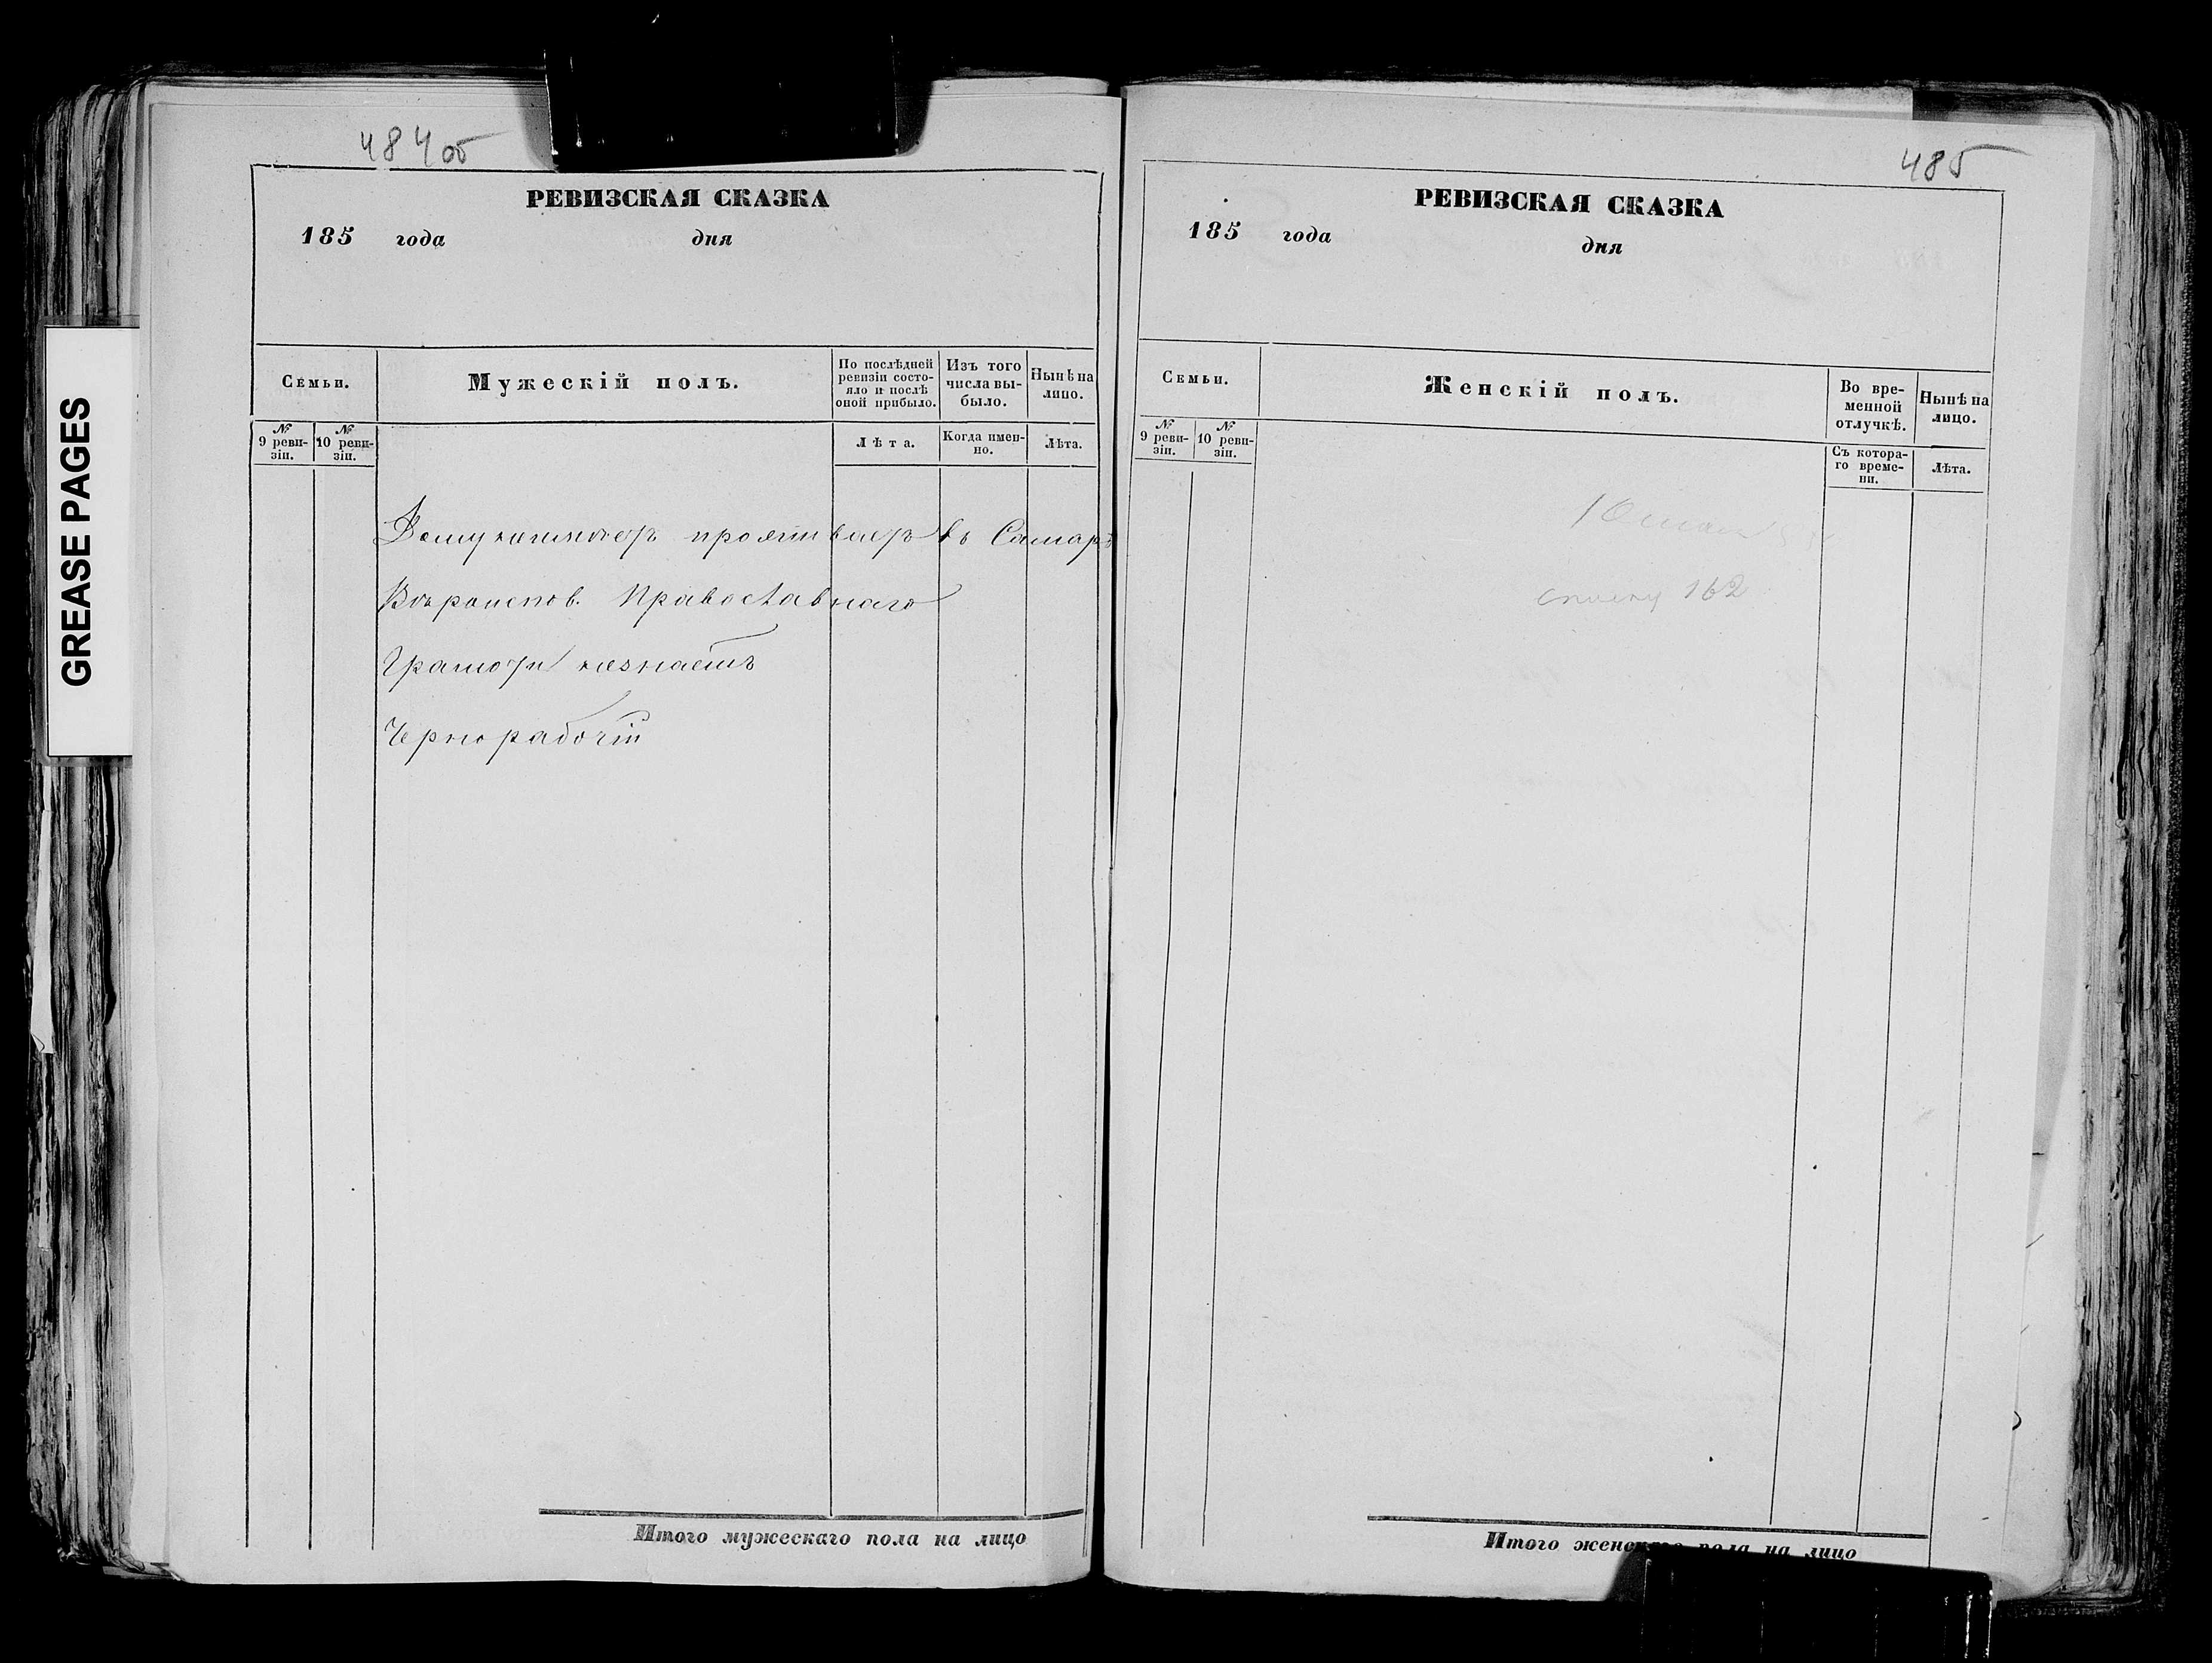 484об
РЕВИЗСКАЯ СКАЗКА
185 года дня
Семьи.
Мужескій полъ.
По послѣдней ревизіи состояло и послѣ оной прибыло.
Изъ того числа выбыло.
Нынѣ на лицо.
№ 9 ревизіи.
№ 10 ревизіи.
Лѣта.
Когда именно.
Лѣта.
въ Самарѣ
Вѣроиспов. Православнаго
Грамоты незнаетъ
Чернорабочій
Итого мужескаго пола на лицо
485
РЕВИЗСКАЯ СКАЗКА
185 года дня
Семьи.
Женскій полъ.
Во временной отлучкѣ.
Нынѣ на лицо.
№ 9 ревизіи.
№ 10 ревизіи.
Съ котораго времени.
Лѣта.
списку 162
Итого женскаго пола на лицо
GREASE PAGES